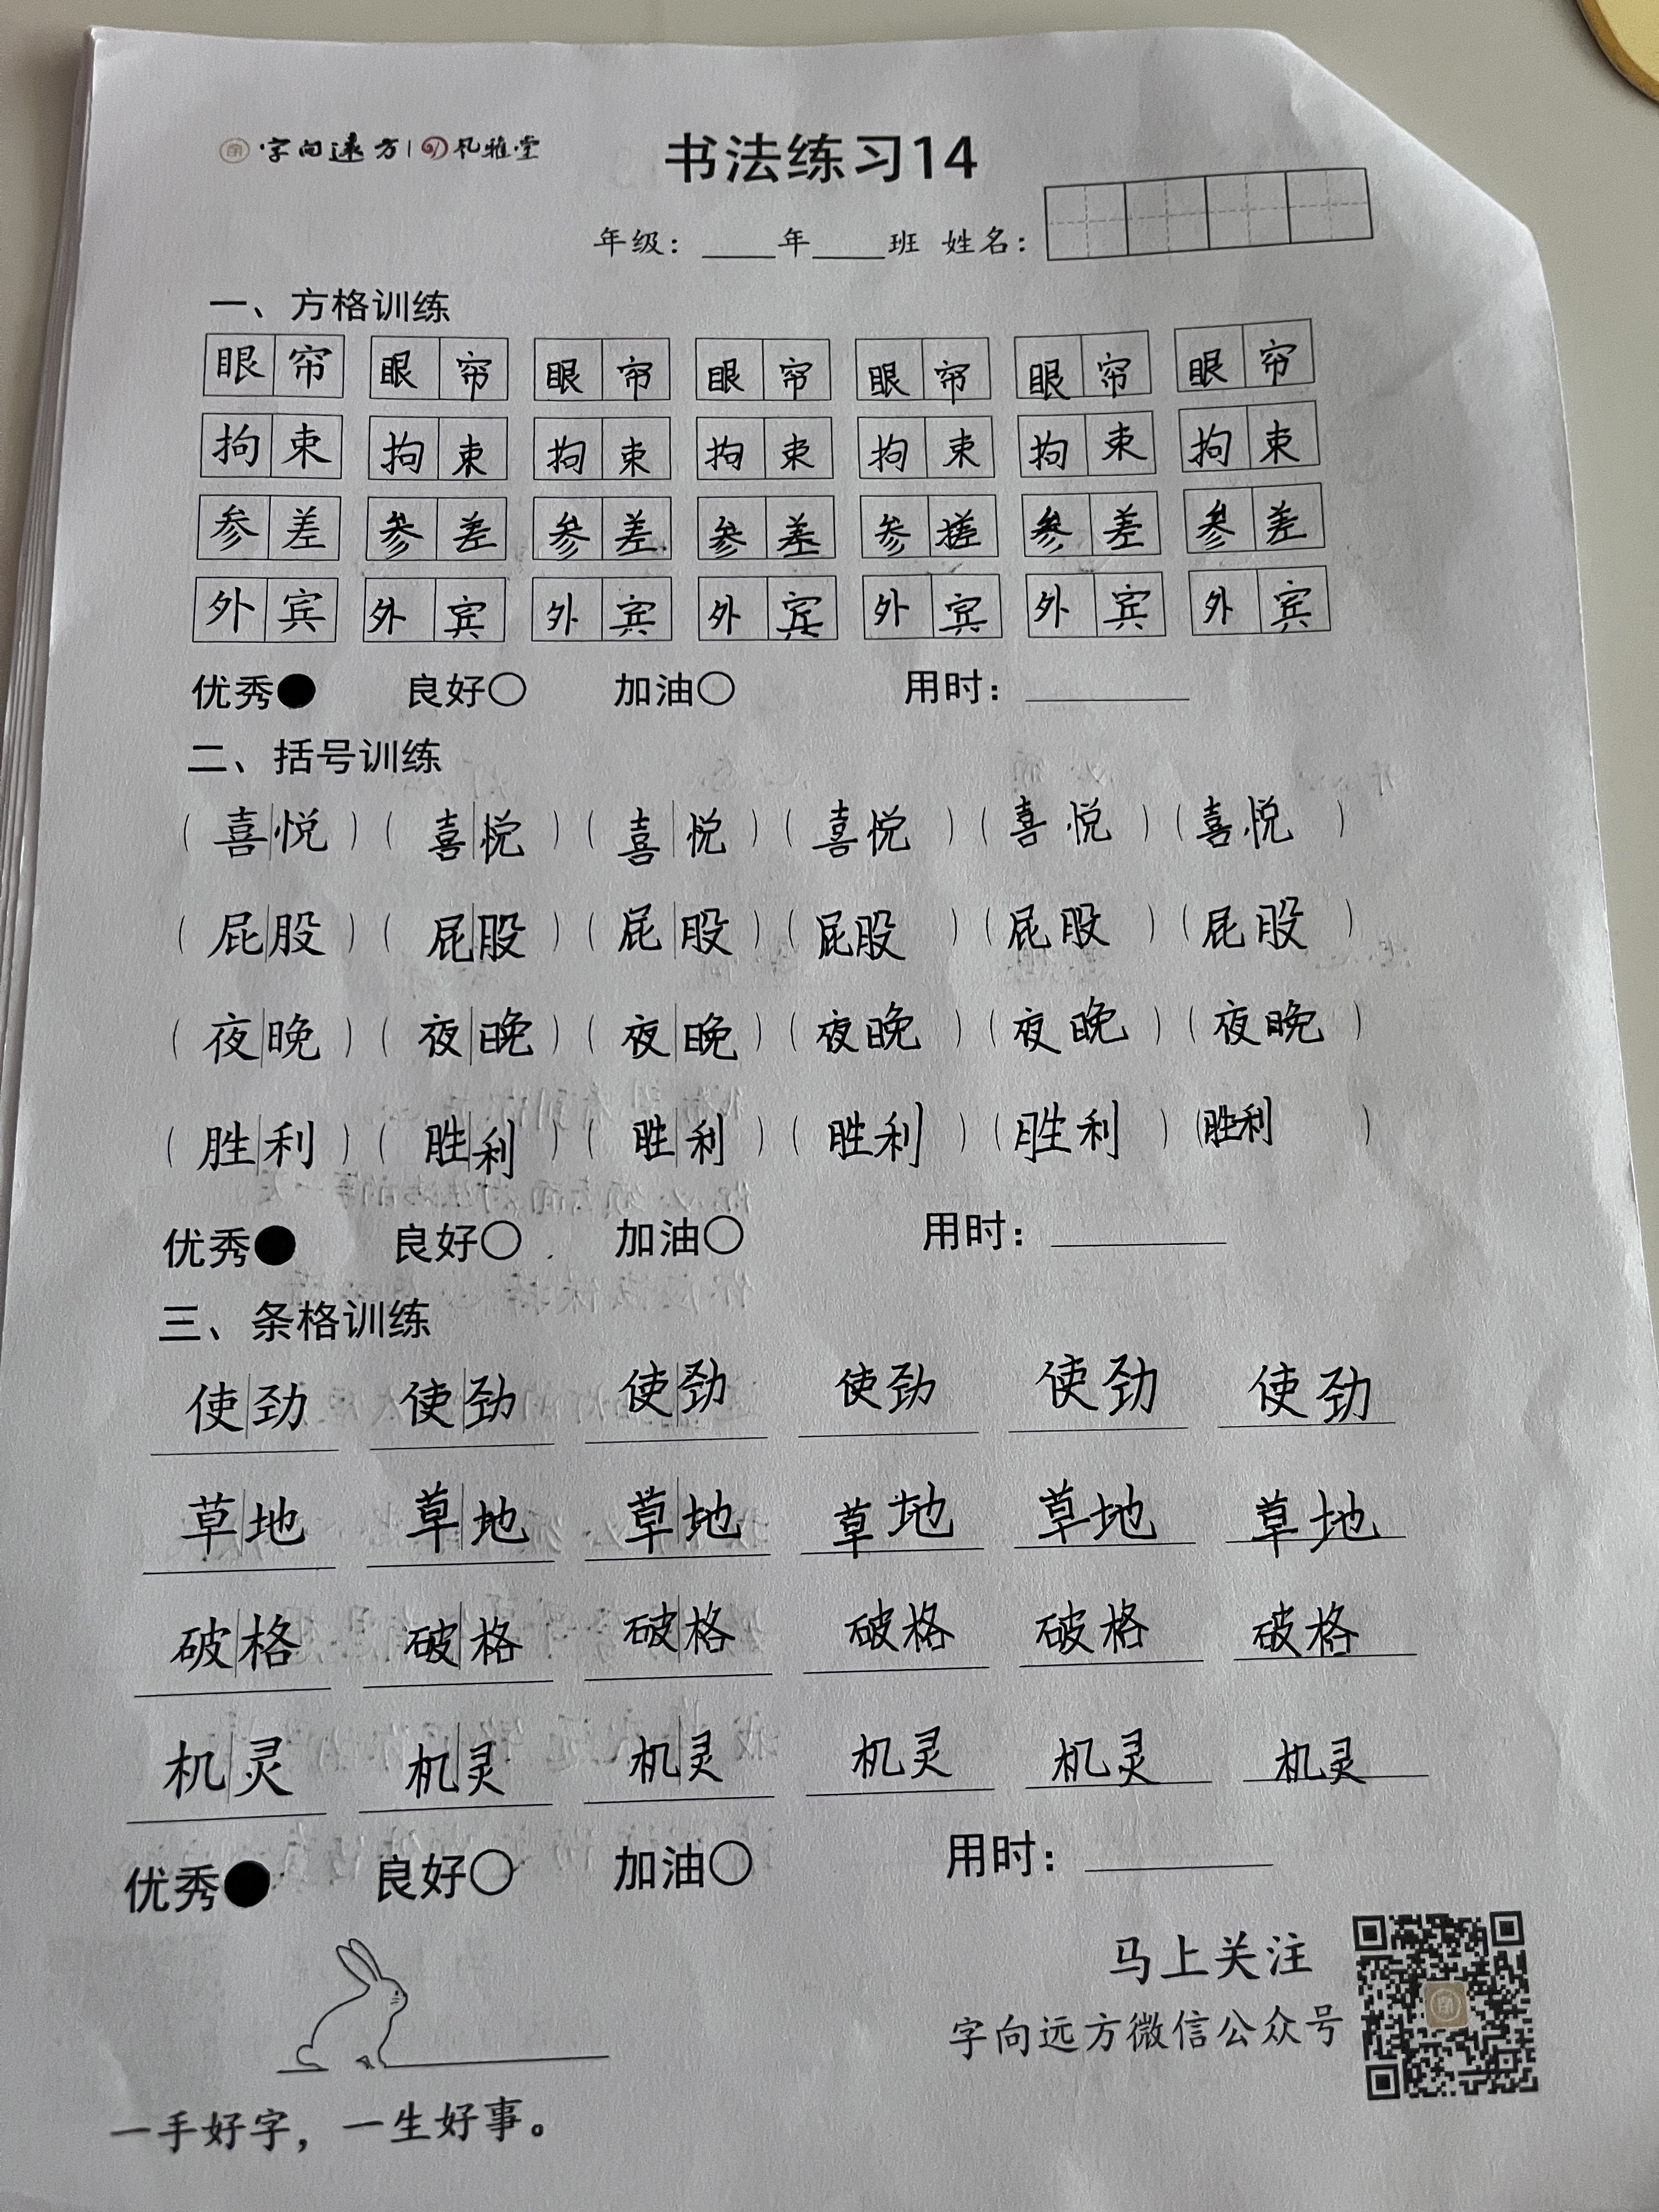 字向远方 | 风雅堂
书法练习14
年级：____年____班 姓名：
一、方格训练
眼帘 眼帘 眼帘 眼帘 眼帘 眼帘 眼帘
拘束 拘束 拘束 拘束 拘束 拘束 拘束
参差 参差 参差 参差 参差 参差 参差
外宾 外宾 外宾 外宾 外宾 外宾 外宾
优秀● 良好○ 加油○ 用时：________
二、括号训练
（喜悦）（喜悦）（喜悦）（喜悦）（喜悦）（喜悦）
（屁股）（屁股）（屁股）（屁股）（屁股）（屁股）
（夜晚）（夜晚）（夜晚）（夜晚）（夜晚）（夜晚）
（胜利）（胜利）（胜利）（胜利）（胜利）（胜利）
优秀● 良好○ 加油○ 用时：________
三、条格训练
使劲 使劲 使劲 使劲 使劲 使劲
草地 草地 草地 草地 草地 草地
破格 破格 破格 破格 破格 破格
机灵 机灵 机灵 机灵 机灵 机灵
优秀● 良好○ 加油○ 用时：________
马上关注
字向远方微信公众号
一手好字，一生好事。